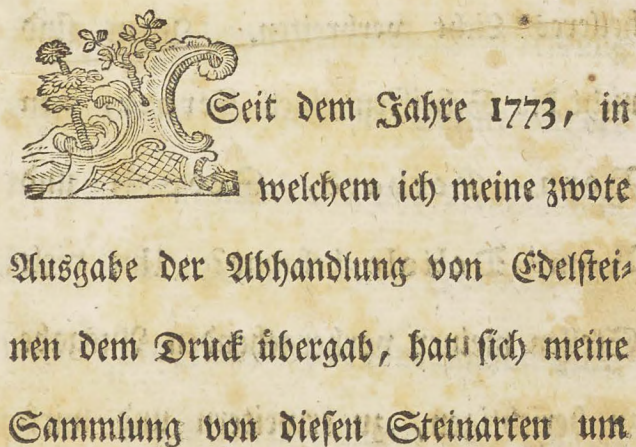 Seit dem Jahre 1773, in
welchem ich meine zwote
Ausgabe der Abhandlung von Edelstei⸗
nen dem Druck übergab, hat sich meine
Sammlung von diesen Steinarten um